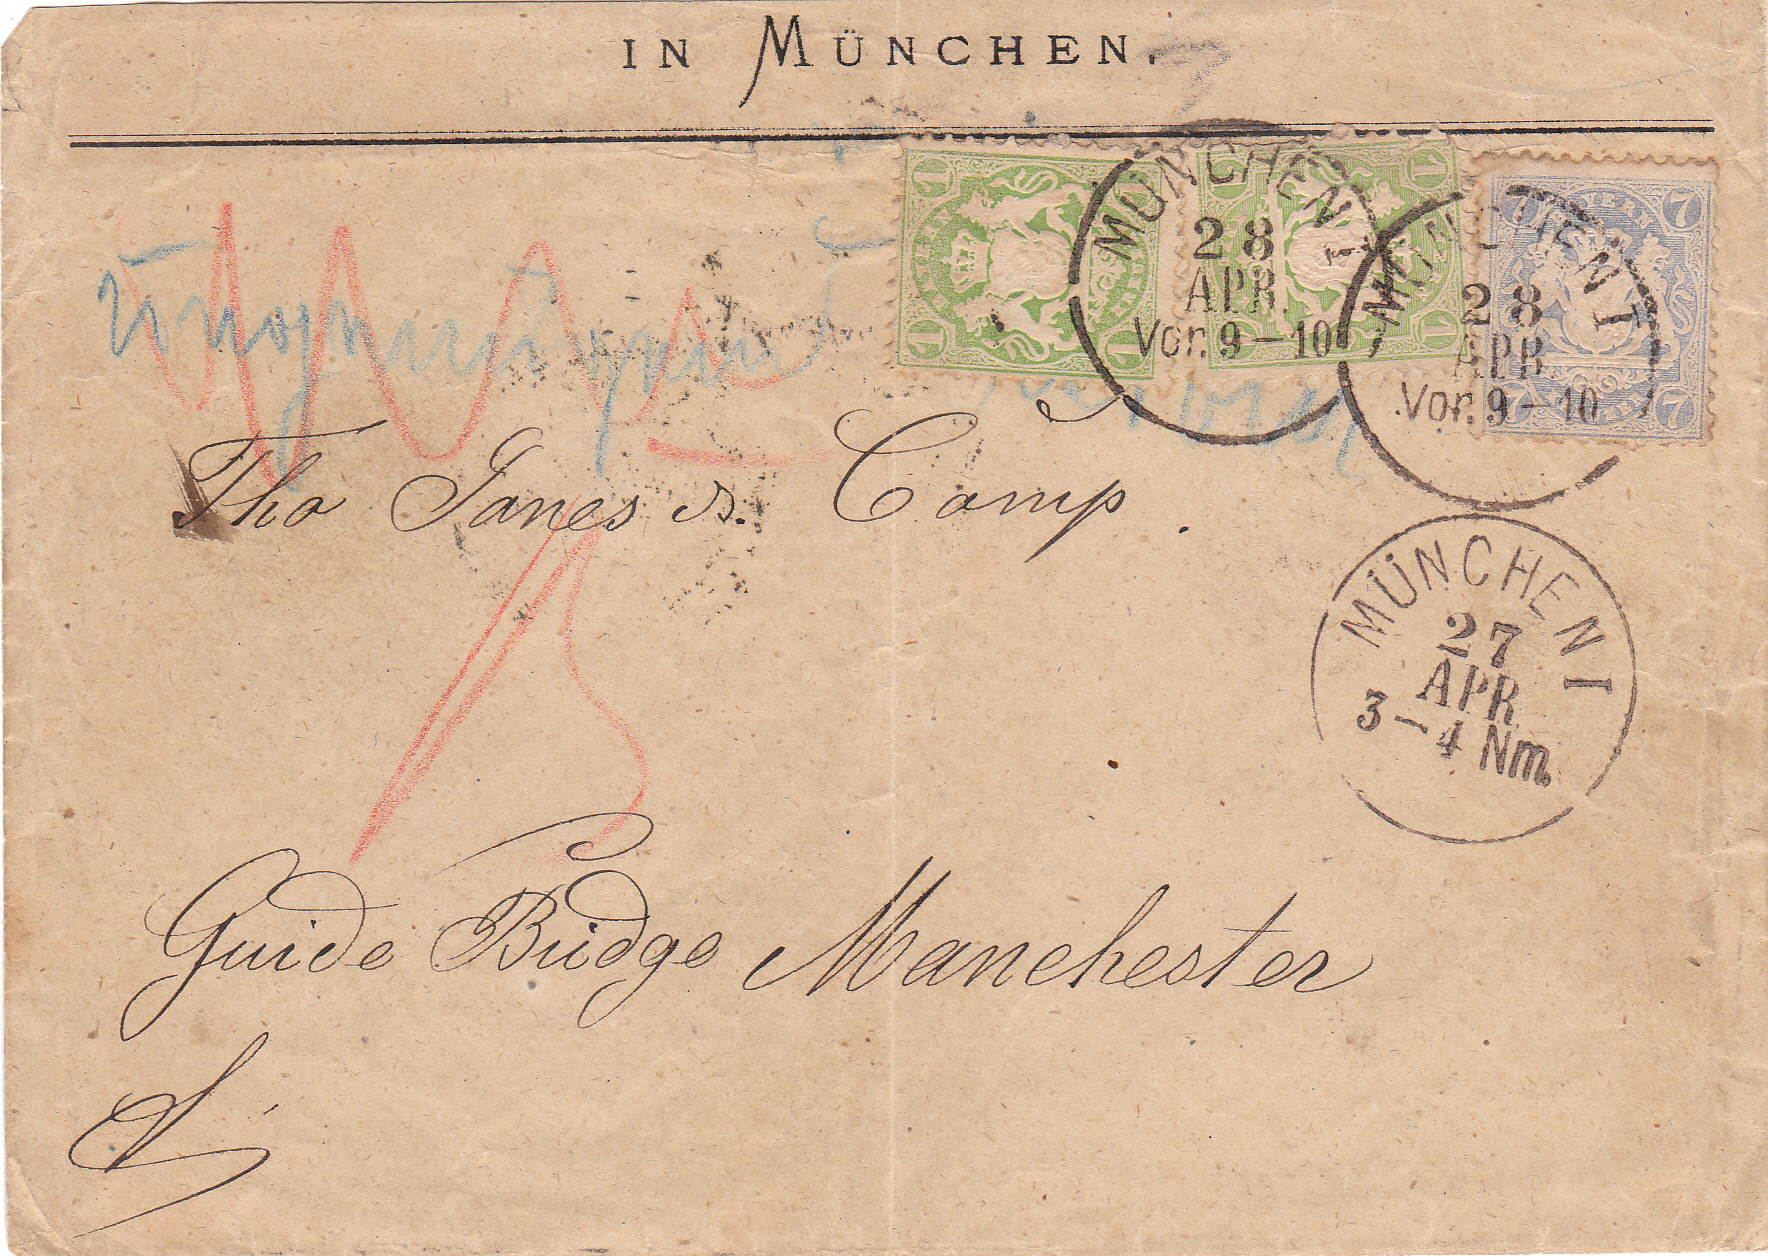 IN MÜNCHEN.
1 1 1 1
1 1 1 1
7 BAYERN 7
7 7
MÜNCHEN I
28
APR.
Vor. 9-10
MÜNCHEN I
28
APR.
Vor. 9-10
Tho Jones & Comp.
MÜNCHEN I
27
APR
3-4 Nm.
Guide Bridge Manchester